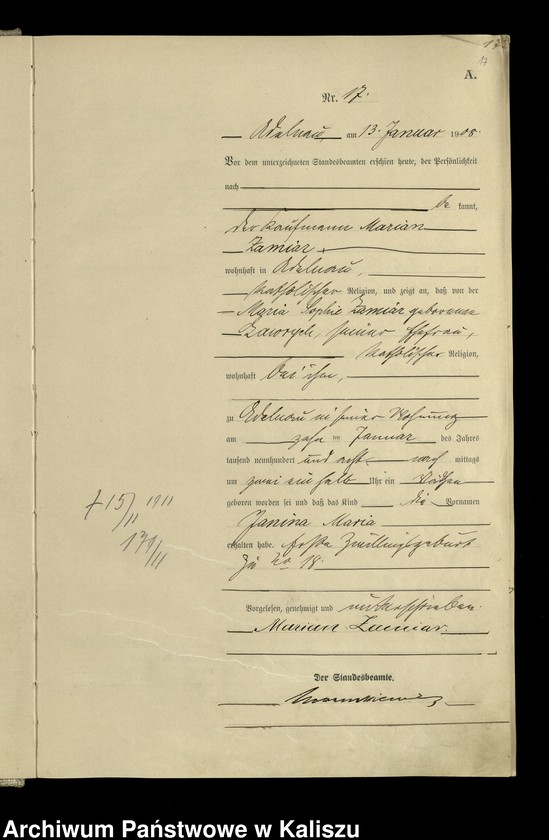 17
A.
Nr. 17.
Adelnau, am 13. Januar 1908.
Vor dem unterzeichneten Standesbeamten erschien heute, der Persönlichkeit
nach
be kannt,
der Kaufmann Marian
Zamiar,
wohnhaft in Adelnau,
katholischer Religion, und zeigt an, daß von der
Maria Sophie Zamiar geborenen
seiner Ehefrau,
katholischer Religion,
wohnhaft bei ihm,
zu Adelnau in seiner Wohnung
am zehn ten Januar des Jahres
tausend neunhundert und acht nach mittags
um zwei ein halb Uhr ein Mädchen
geboren worden sei und daß das Kind die Vornamen
Janina Maria
erhalten habe. Erste Zwillingsgeburt
zu No 18.
Vorgelesen, genehmigt und unterschrieben.
Marian Zamiar.
Der Standesbeamte.
+ 15/II 1911
Archiwum Państwowe w Kaliszu